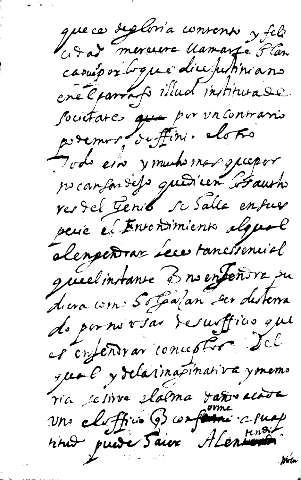 que ce de gloria contento y feli
cidad merecere llamarse blan
ca pues por lo que dice Justiniano
en el parrafo illud instituta de
societate que por un contrario
podemos deffinir el otro
Todo esto y mucho mas que por
no cansar dejo que dicen los auth
res del Genio se halla en su es
pecie el Entendimiento al qual
el engendrar le ce tan essencial
que el instante q no engendra su
diera como holgazan ser desterra
do por no usar de su officio que
es engendrar conceptos Del
qual y de la imaginativa y memo
ria se sirve el alma dando a cada
uno el officio q conforme a su ap
titud puede hacer Al entendi